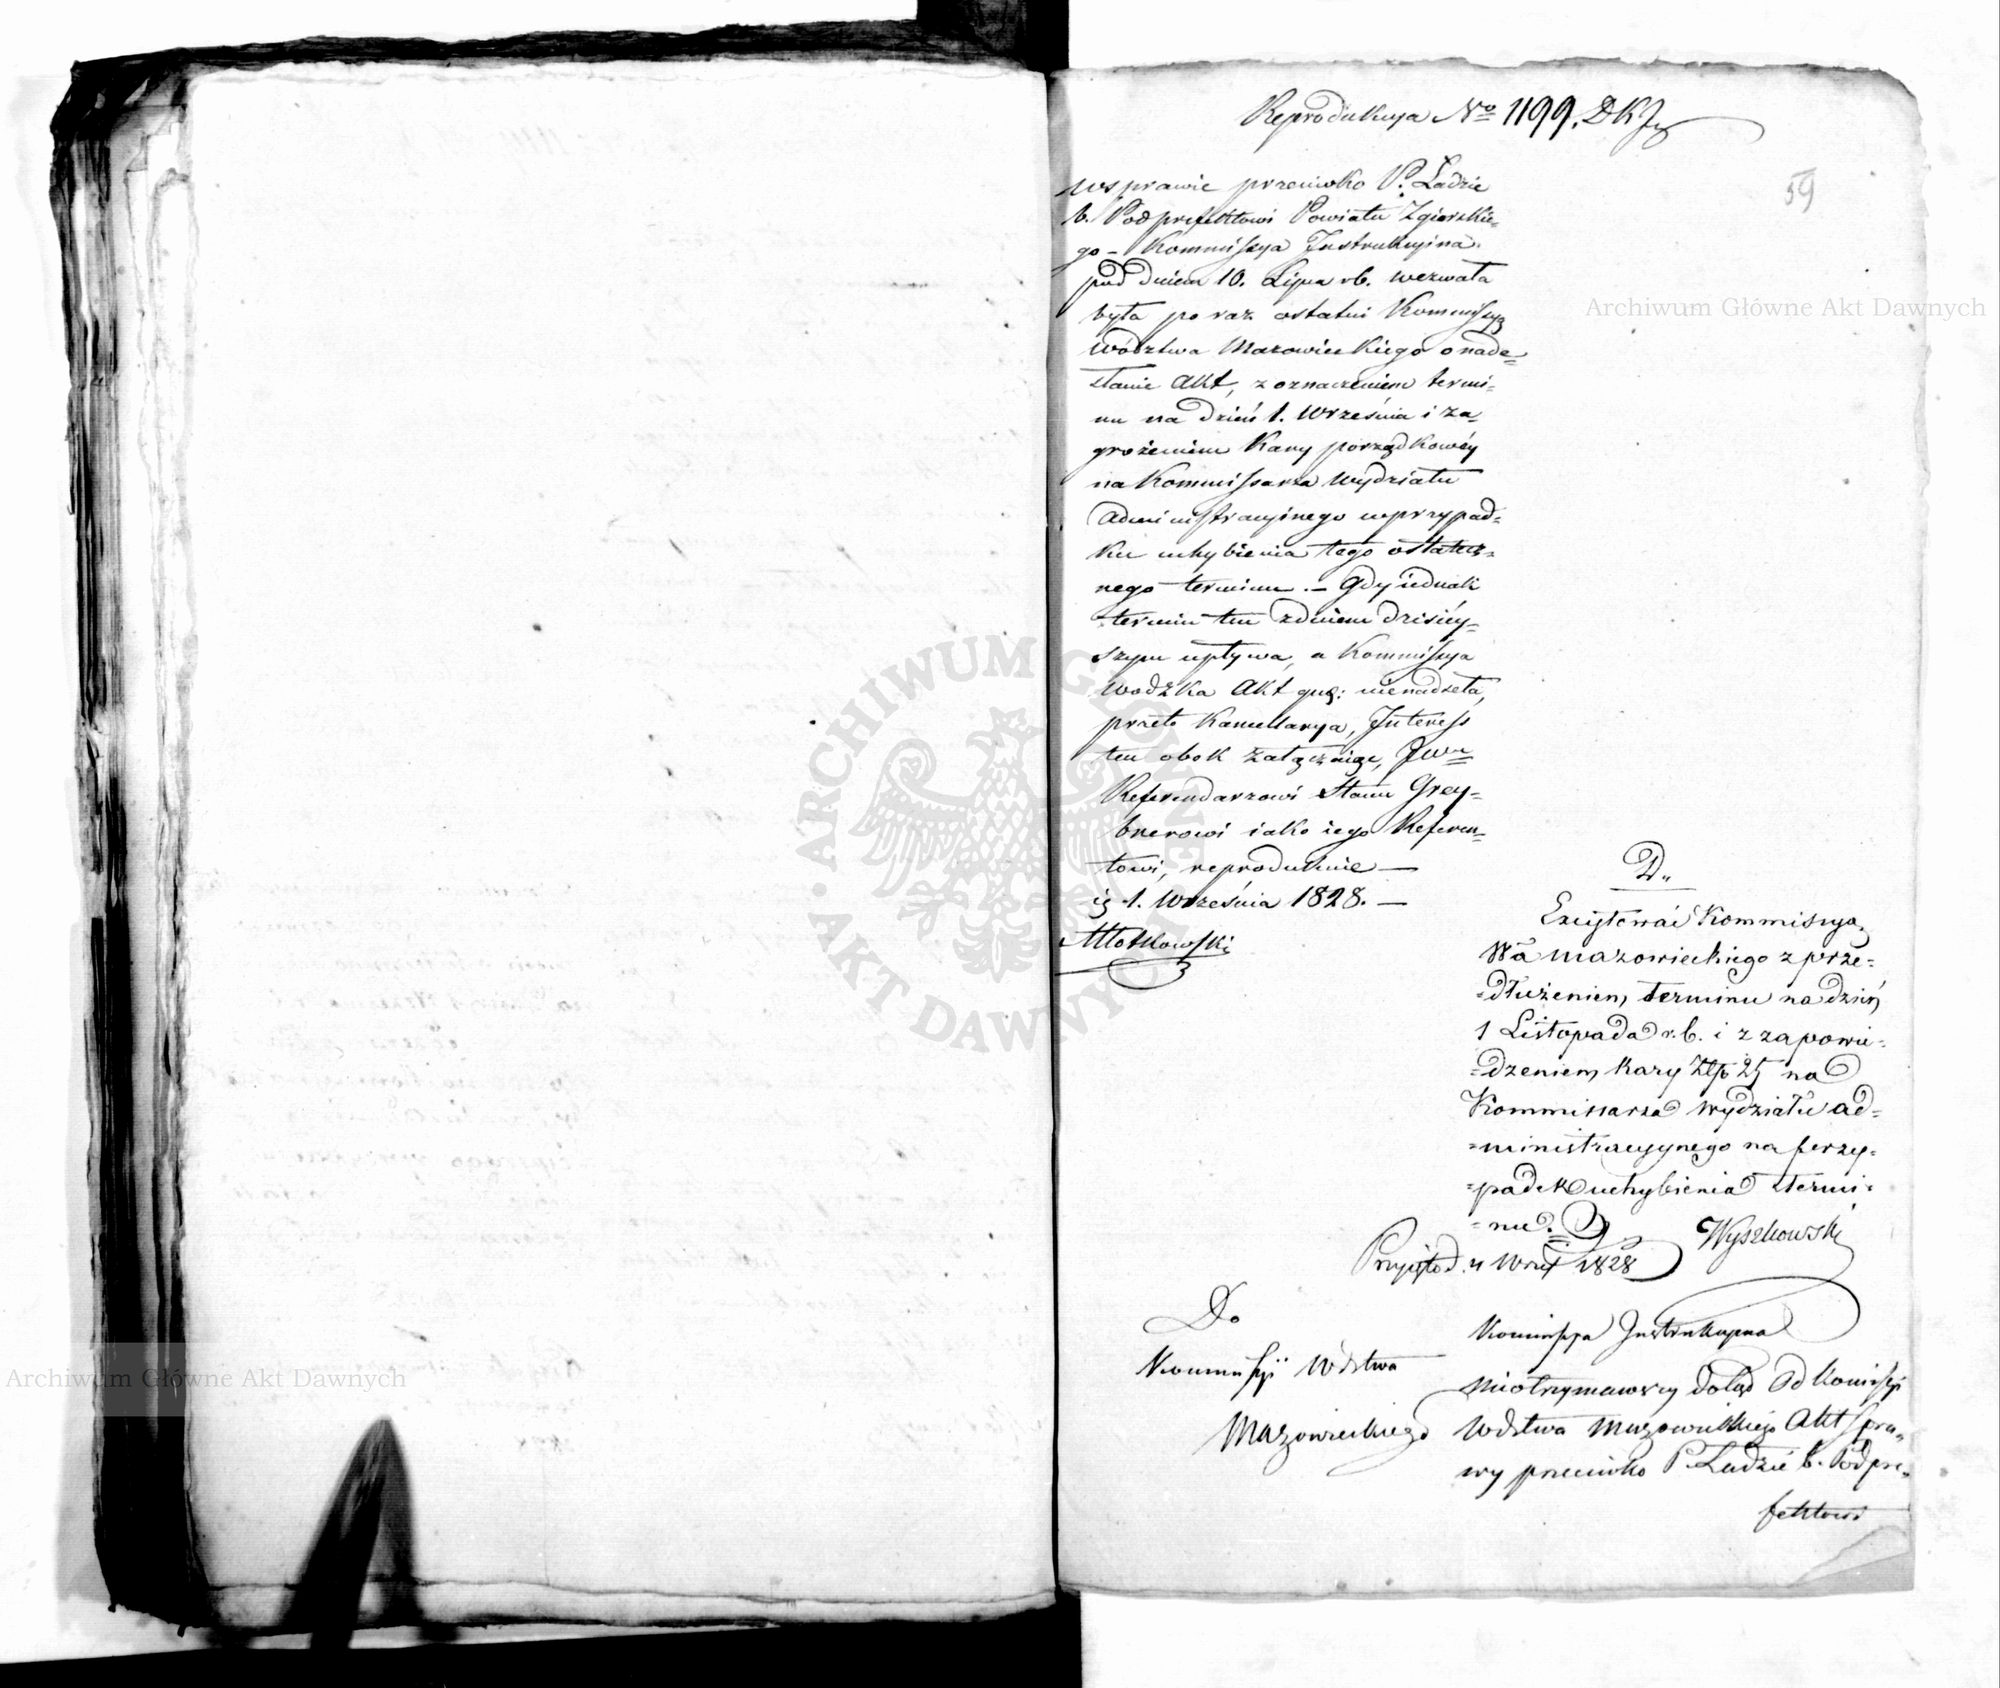 Reprodukcya No 1199. DKJ
59
w sprawie przeciwko P. Ładzie
b. Podprefektowi Powiatu Zgierskie-
go – Kommissya Instrukcyina
pod dniem 10. Lipca rb. wezwała
była po raz ostatni Kommissyą
Wództwa Mazowieckiego o nade-
słanie Akt, z oznaczeniem termi-
nu na dzień 1. Września i za
grożeniem Kary porządkowéy
na Kommissarza Wydziału
Administracyinego w przypad-
ku uchybienia tego ostatecz-
nego terminu. – Gdy iednak
termin ten z dniem dzisiéy-
szym upływa, a Kommissya
Wodzka Akt nienadzeła,
przeto Kancellarya, Interess
ten obok załącznięć, JWu
Referendarzowi Stanu Grey-
bnerowi iako iego Referen-
towi, reprodukuie —
1. Września 1828. —
Młokowski
D.
Excytować Kommissyą
Wa Mazowieckiego z prze-
-dłużeniem terminu na dzień
1 Listopada r.b. i z zapowie-
-dzeniem kary Złp 25 na
Kommissarza Wydziału ad-
-ministracyjnego na przy-
-padek uchybienia termi-
-nu.
Wyszkowski
Przyięto d. 4 Wrześ 1828
Do
Kommissyi Wdztwa
Mazowieckiego
Kommissya Instrukcyjna
Nieotrzymawszy dotąd od Komissyi
Wdztwa Mazowieckiego Akt spra-
wy przeciwko P. Ładzie b. Podpre-
fektowi
Archiwum Główne Akt Dawnych
Archiwum Główne Akt Dawnych
ARCHIWUM GŁÓWNE AKT DAWNYCH